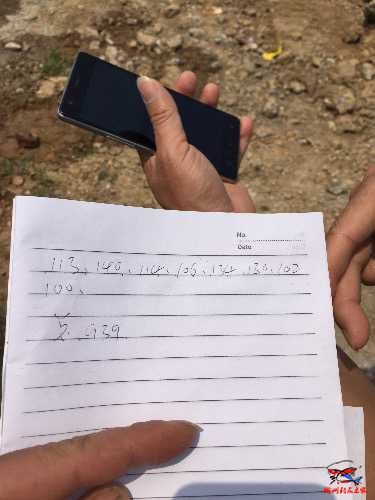 No.
Date
113、140、114、106、134、130、102
100、
939
钓友之家